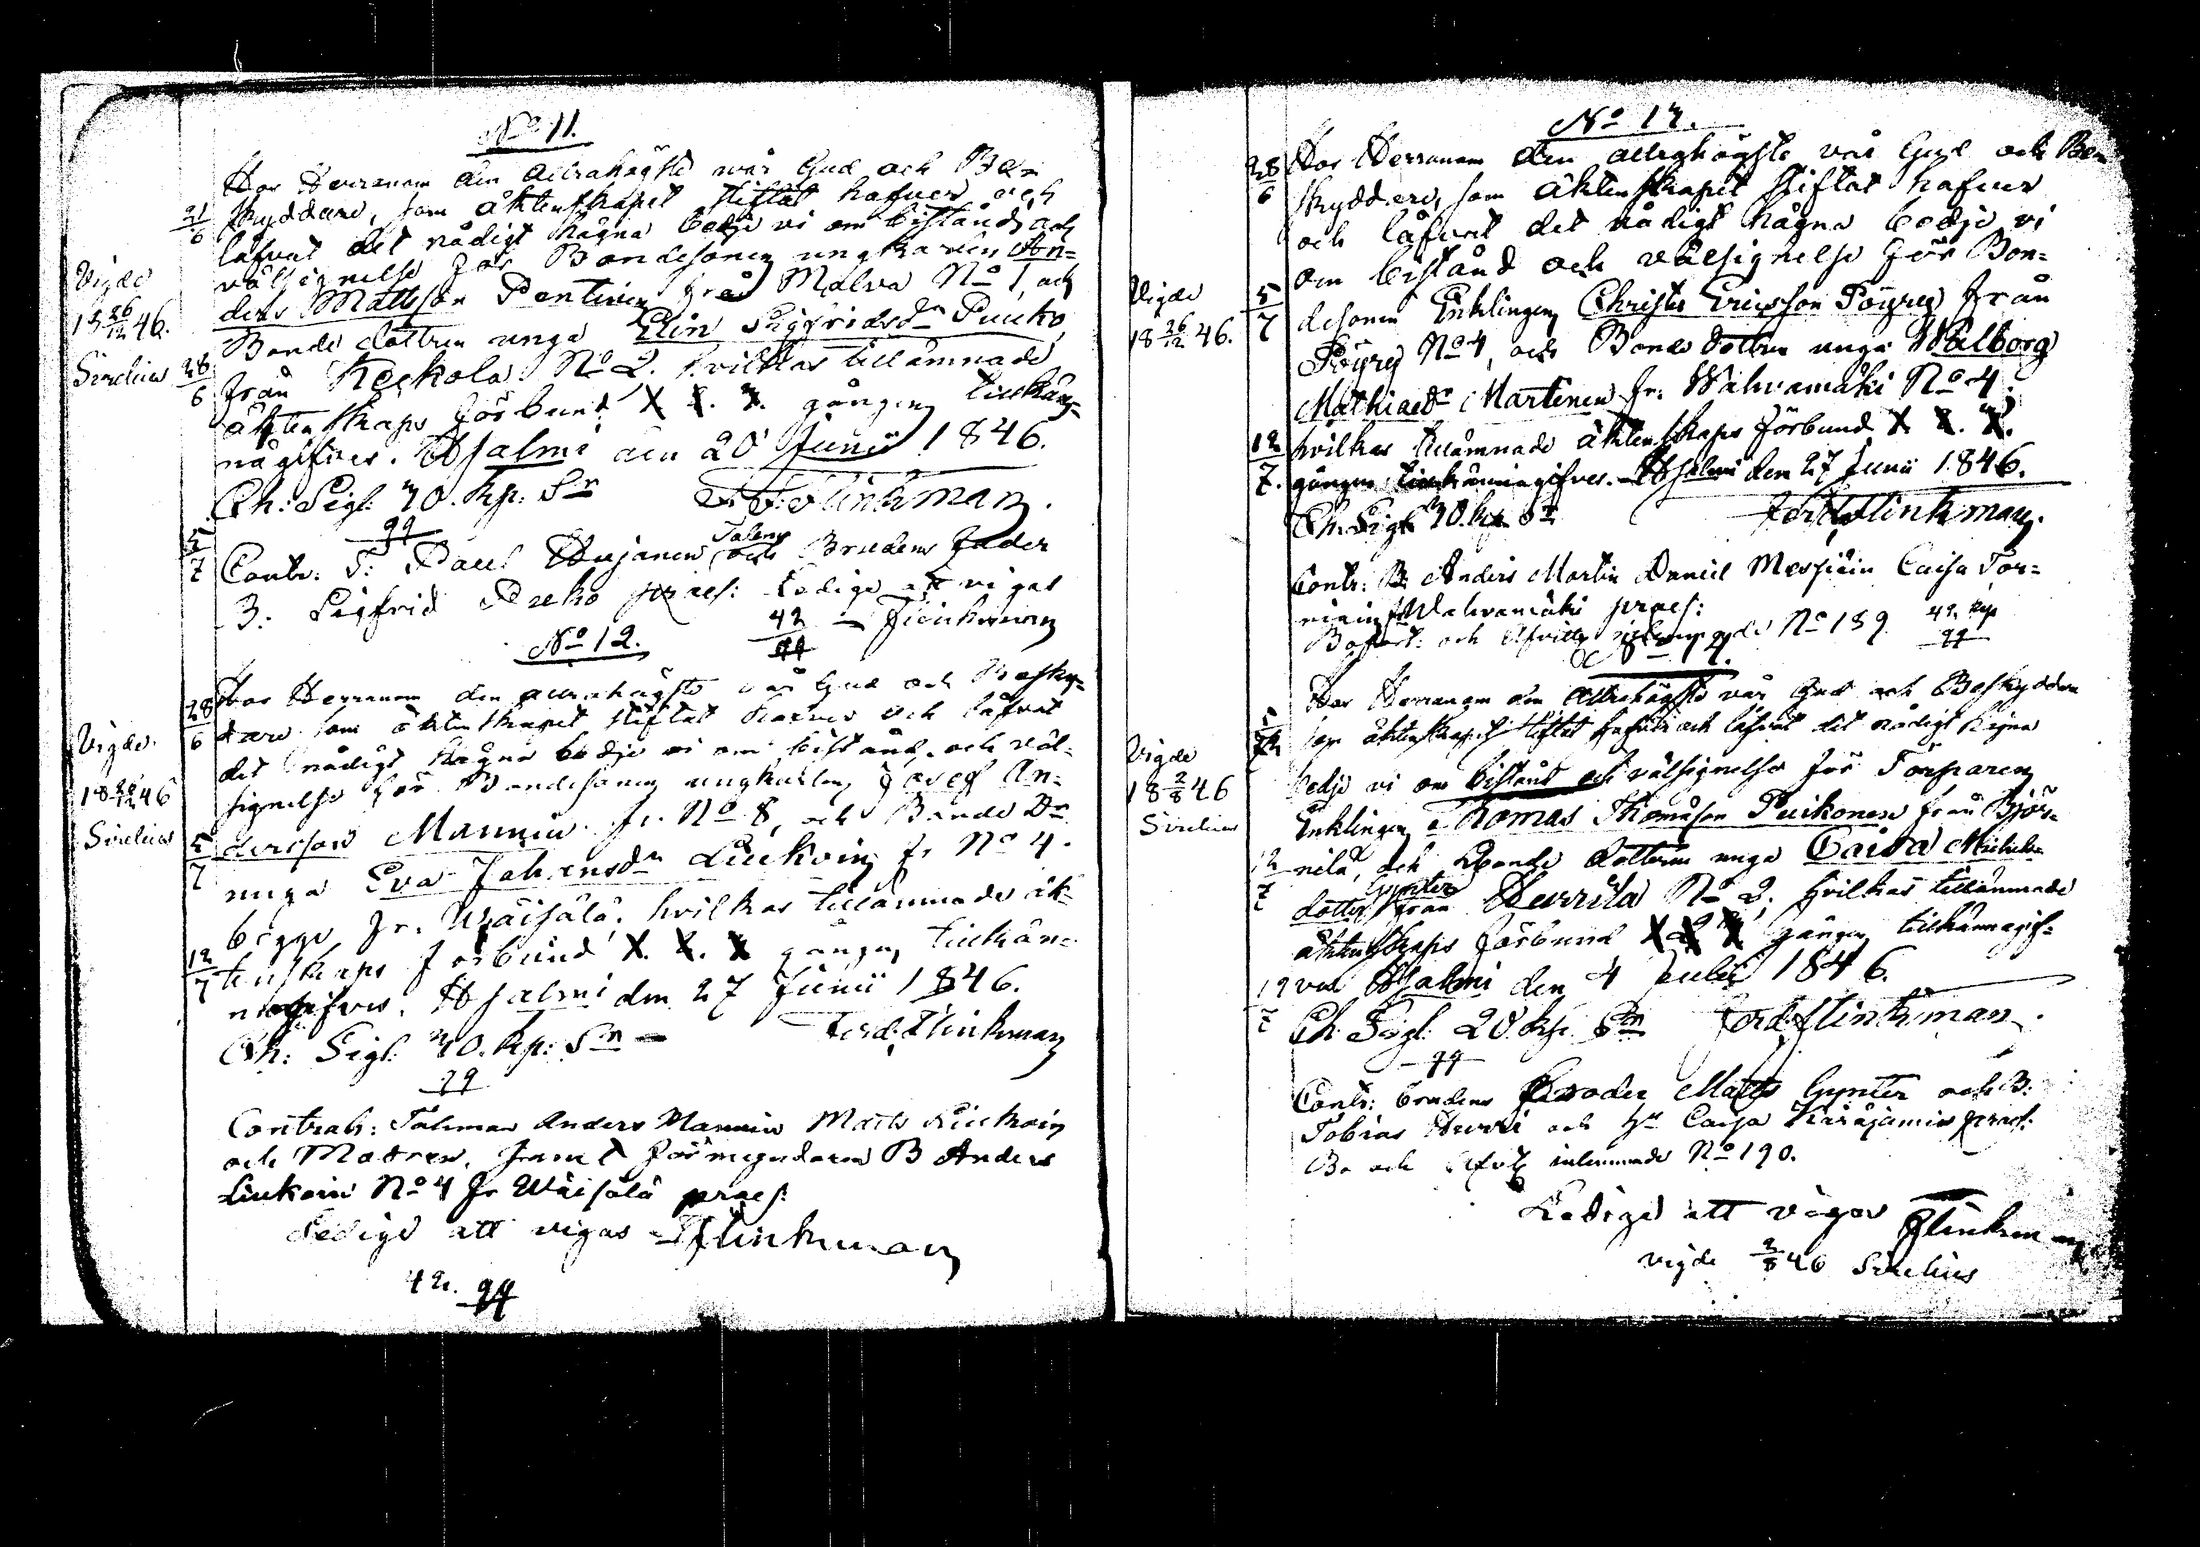 No 11.
Hos Herranom den Allrahögste vår Gud och Be=
21/6 skyddare, som äktenskapet stiftat hafver och
låfvat det nådigt hägna bedje vi om bistånd och
välsignelse för Bondesonen ungkarlen An=
ders Mattsson Pentinen från Malva No 1, och
Bonde dottren unga Elin Sigfridsdr Puuko
28/6 från Keckola No 2. hvilkas tillämnade
äktenskaps förbund X X. X. gången tillkän=
nagifves. Hjalmi den 20 Junii 1846.
Ch: Sigl. 30. kp. Sr F. Flinkman.
99
Vigde
18 26/12 46.
Sirelius
5/7 Contr: T: Paul Hujanen Talem och Brudens fader
B: Sigfrid Puuko praes: Ledige att vigas
42 Flinkman
99
No 12.
28/6 Hos Herranom den allrahögste vår Gud och Besky=
dare som äktenskapet stiftat hafver och låfvat
det nådigt hägna bedje vi om bistånd, och väl=
signelse för Bondesonen ungkarlen Josef An=
5/7 dersson Mannin fr. No 8, och Bonde Dr
unga Eva Johansdr Liukoin fr No 4.
bägge fr. Wäisälä, hvilkas tillämnade äk=
12/7 tenskaps förbund X. X. X gången tillkän=
nagifves. Hjalmi den 27 Junii 1846.
Ch: Sigl: 30. kp: Sr Ferd: Flinkman
99
Vigde
18 26/12 46
Sirelius
Contrah: Talman Anders Mannin Matts Liukoin
och Modren, samt förmyndaren B Anders
Liukoin No 4 fr Wäisälä praes:
Ledige att vigas Flinkman
42. 99
No 13.
28/6 Hos Herranom den allrahögste vår Gud och Be=
skyddare, som äktenskapet stiftat hafver
och låfvat det nådigt hägna bedje vi
om bistånd och välsignelse för Bon=
5/7 desonen Enklingen Christer Ericsson Pöyry från
Pöyry No 4, och Bonde dottren unga Walborg
Mathiaedr Martinen fr. Wahvamäki No 4.
12/7. hvilkas tillämnade äktenskaps förbund X. X. X.
gången tillkännagifves. Hjalmi den 27 Junii 1846.
Ch: Sigl 30. kp Sr Ferd: Flinkman.
Vigde
18 26/12 46.
Contr: B: Anders Martin Daniel Caisa
Wahvamäki praes:
No 189 42 kp
99
No 14.
Hos Herranom den Allrahögste vår Gud och Beskyddare
5/7 som äktenskapet stiftat hafver och låfvat det nådigt hägna
bedje vi om bistånd och välsignelse för Torparen
Enklingen Thomas Thomasson Puikonen från Björ=
12/7 nilä, och Bonde dottren unga Caisa Michels
dotter Gynter från Hurrila No 2. hvilkas tillämnade
äktenskaps förbund X X X gången tillkännagif=
19/7 ves Hjalmi den 4 Julii 1846.
Ch: Sigl: 20 kp. Sr Ferd: Flinkman.
99
Vigde
18 2/8 46
Sirelius
Contr: brudens Broder Matts Gynter och B:
Tobias Hurri och Caisa praes:
Be och inlemnade No 190.
Ledige att vigas Flinkman
vigde 2/8 46 Sirelius